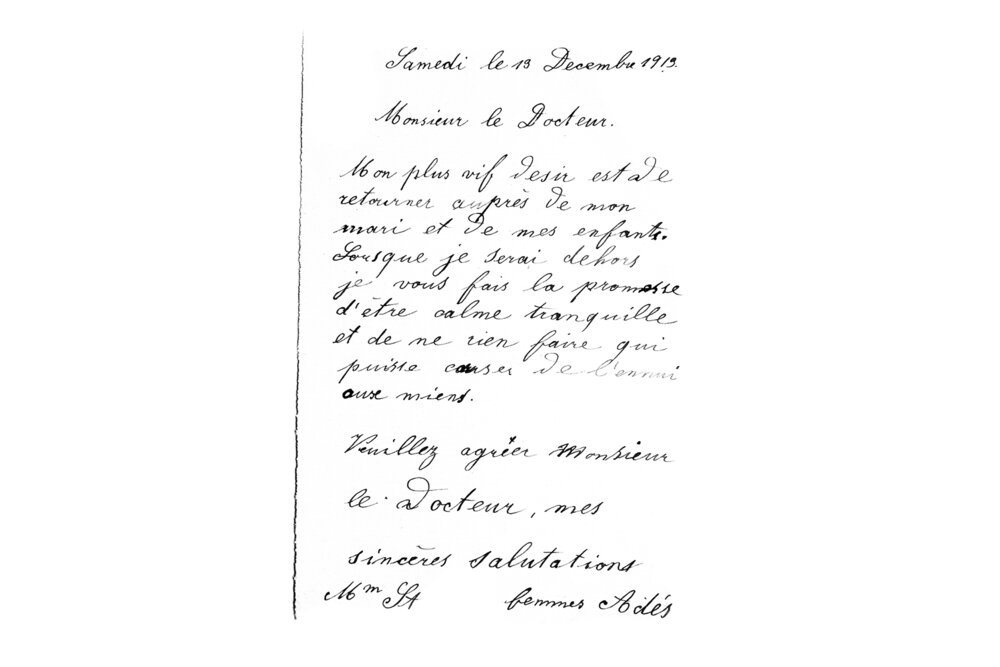 Samedi le 13 Decembre 1913.
Monsieur le Docteur.
Mon plus vif desir est de
retourner auprès de mon
mari et de mes enfants.
Lorsque je serai dehors
je vous fais la promesse
d'être calme tranquille
et de ne rien faire qui
puisse causer de l'ennui
aux miens.
Veuillez agréer Monsieur
le Docteur, mes
sincères salutations
Mm St femmes Adés